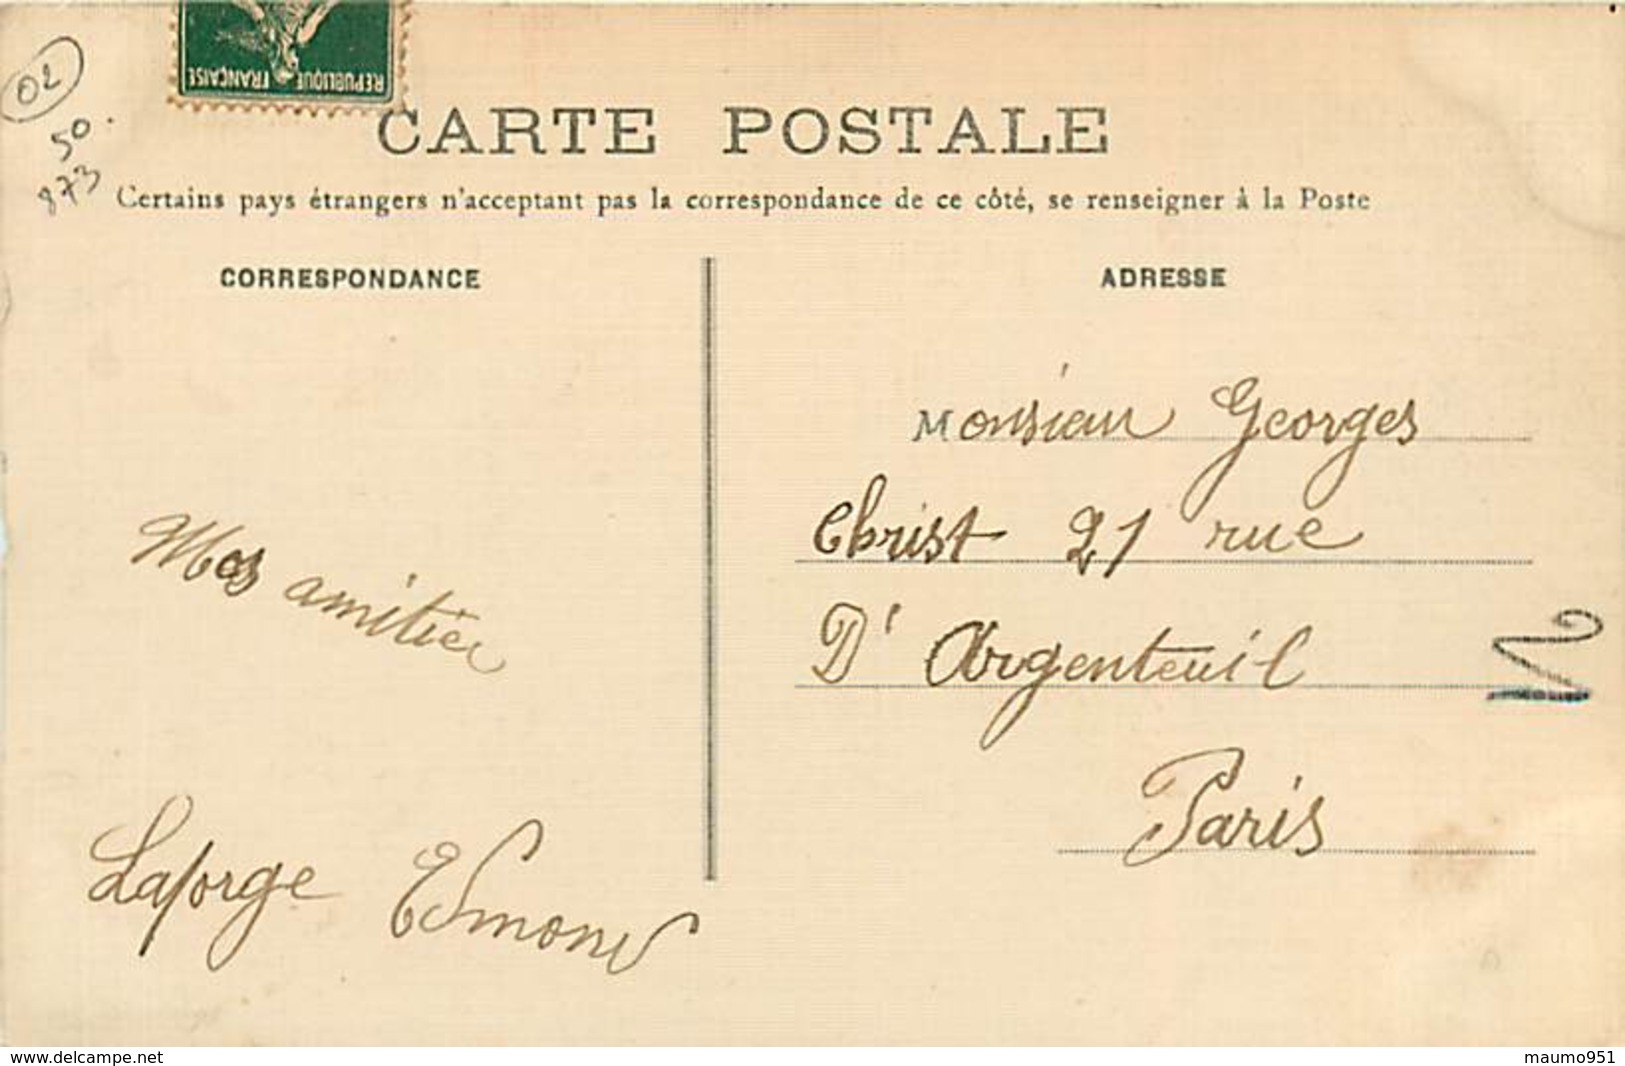 REPUBLIQUE FRANÇAISE
02
50.
873
CARTE POSTALE
Certains pays étrangers n'acceptant pas la correspondance de ce côté, se renseigner à la Poste
CORRESPONDANCE
ADRESSE
Monsieur Georges
Christ 21 rue
D' Argenteuil
Paris
Mes amitiés
Laforge Edmond
www.delcampe.net
maumo951